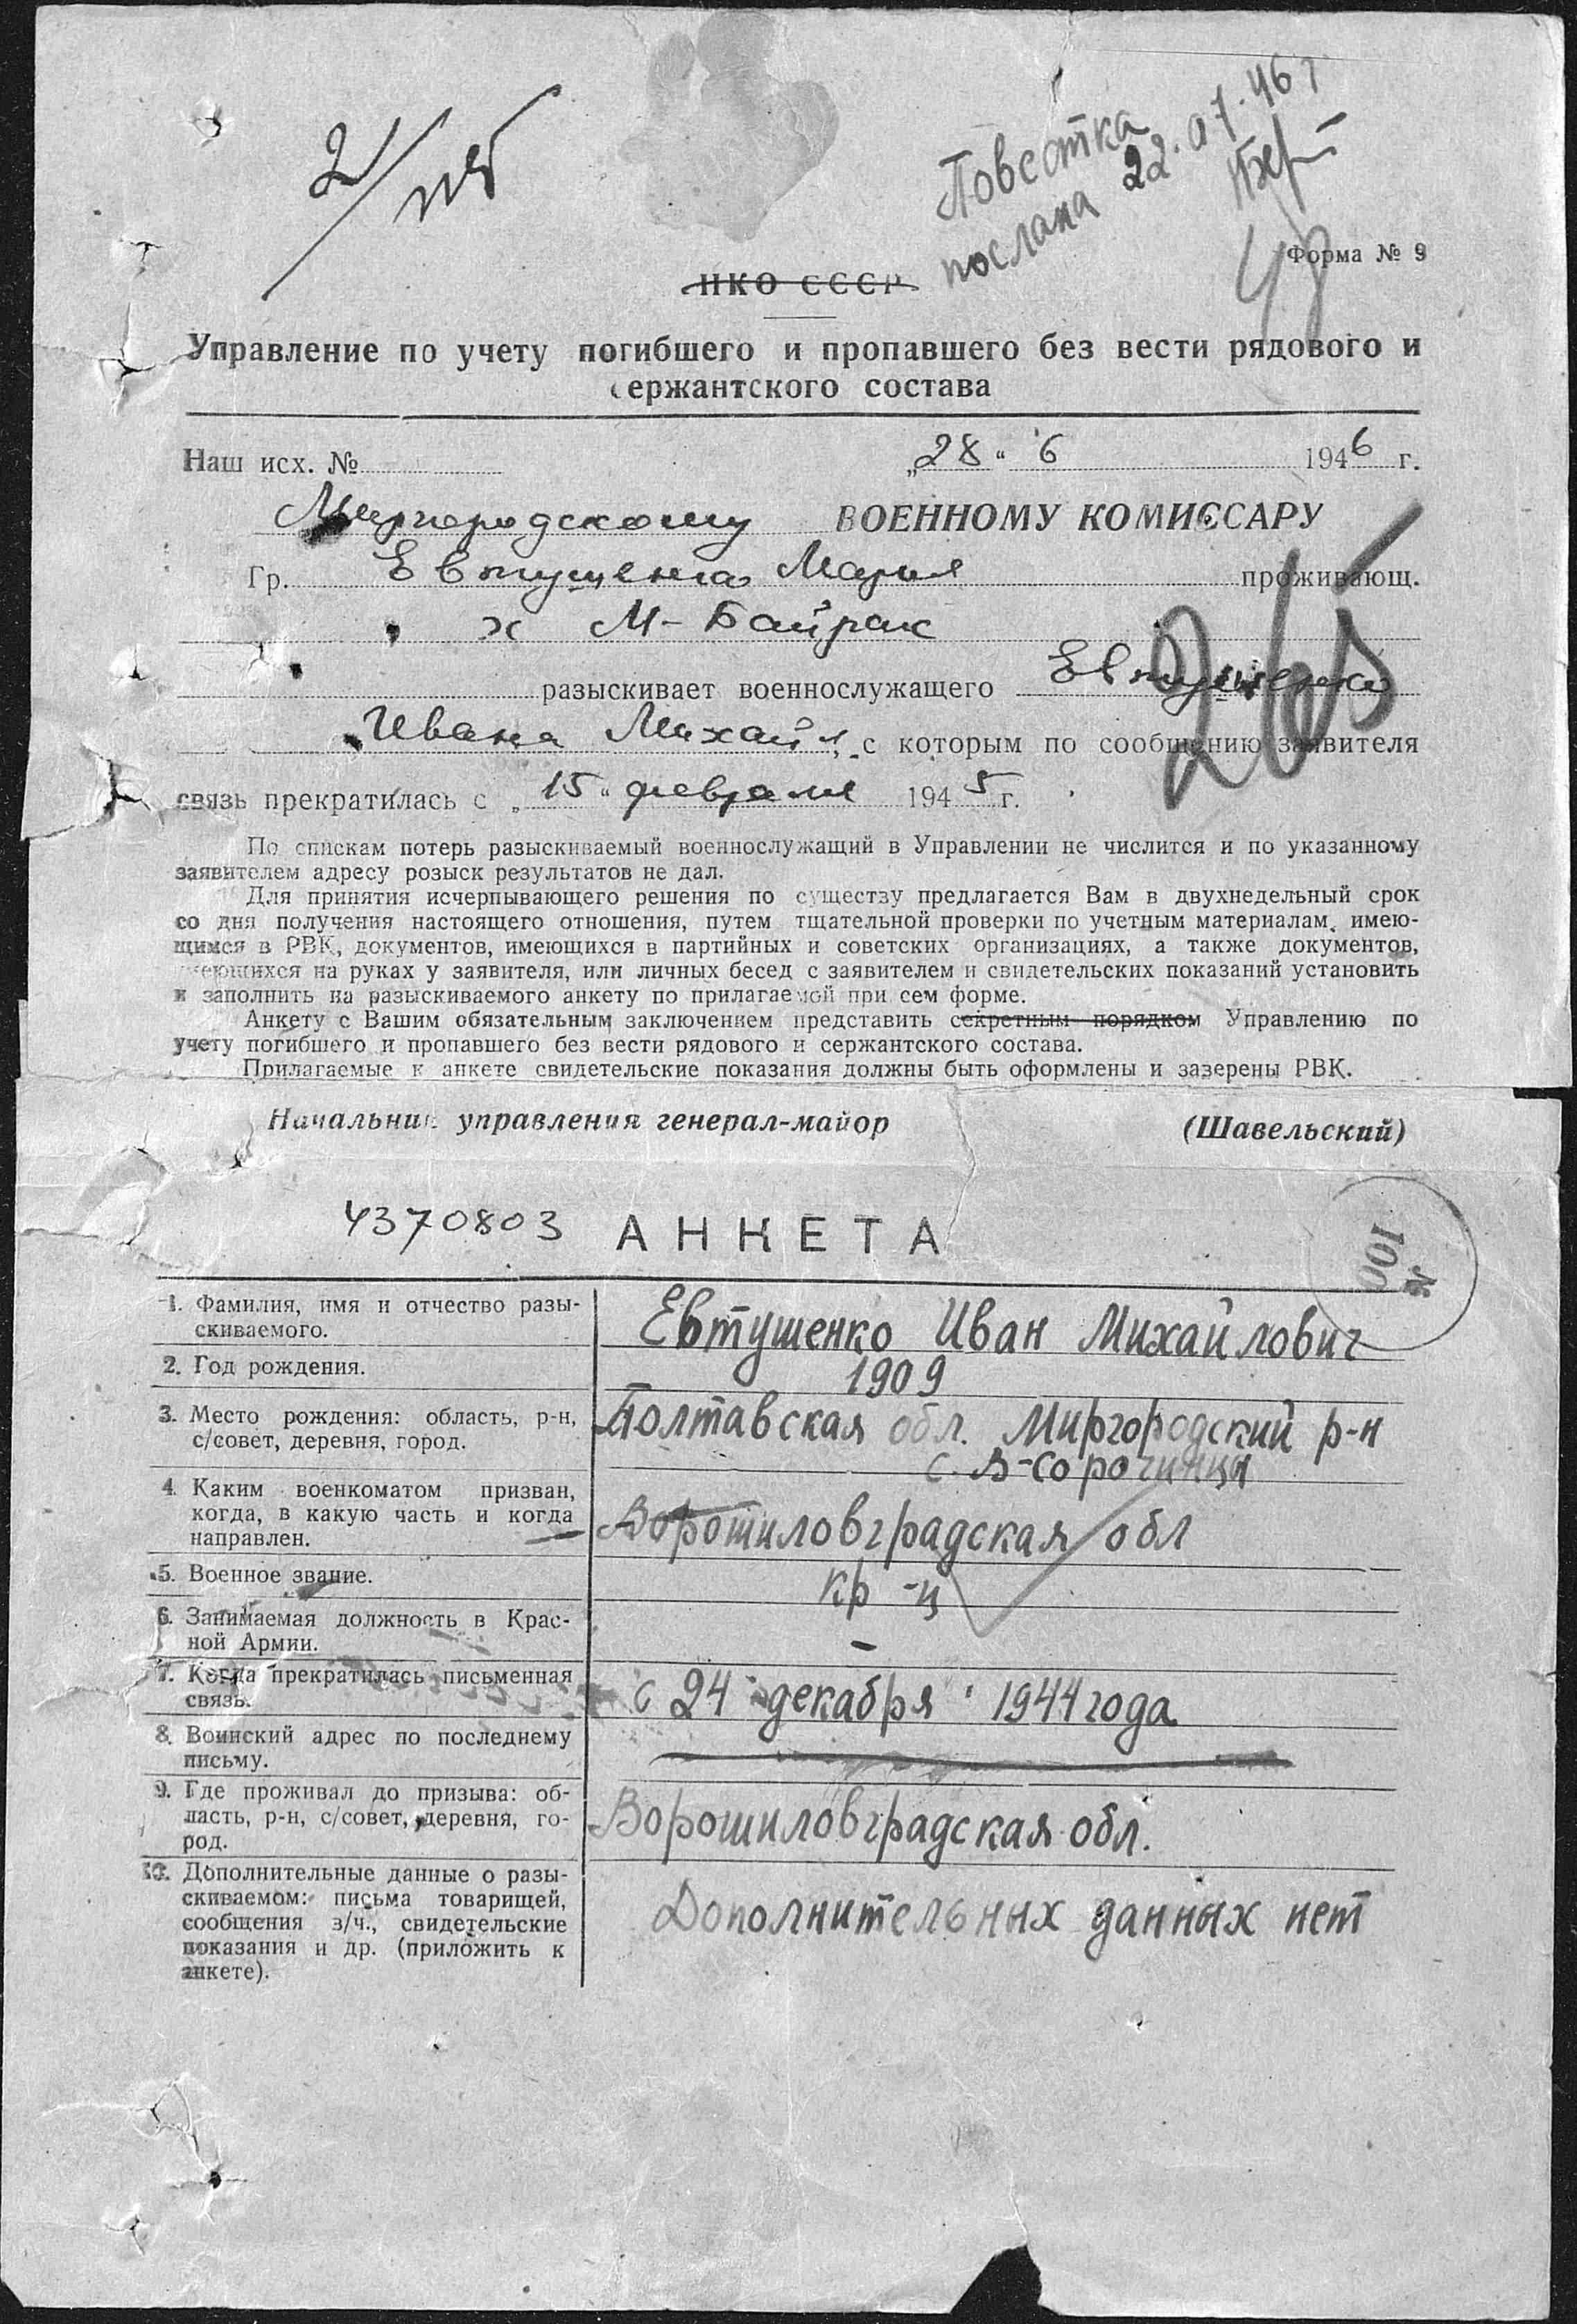 Повестка
послана 22.07.46г
Форма № 9
НКО СССР
Управление по учету погибшего и пропавшего без вести рядового и
сержантского состава
Наш исх. №
„28“ 6 1946 г.
Миргородскому ВОЕННОМУ КОМИССАРУ
Гр. Евтушенко Мария проживающ.
х М-Байрак
265
разыскивает военнослужащего Евтушенко
Ивана Михайл, с которым по сообщению заявителя
связь прекратилась с „15“ февраля 1945 г.
По спискам потерь разыскиваемый военнослужащий в Управлении не числится и по указанному
заявителем адресу розыск результатов не дал.
Для принятия исчерпывающего решения по существу предлагается Вам в двухнедельный срок
со дня получения настоящего отношения, путем тщательной проверки по учетным материалам, имею-
щимся в РВК, документов, имеющихся в партийных и советских организациях, а также документов,
имеющихся на руках у заявителя, или личных бесед с заявителем и свидетельских показаний установить
и заполнить на разыскиваемого анкету по прилагаемой при сем форме.
Анкету с Вашим обязательным заключением представить секретным порядком Управлению по
учету погибшего и пропавшего без вести рядового и сержантского состава.
Прилагаемые к анкете свидетельские показания должны быть оформлены и заверены РВК.
Начальник управления генерал-майор (Шавельский)
4370803 АНКЕТА
№ 100
1. Фамилия, имя и отчество разы-
скиваемого.
Евтушенко Иван Михайлович
2. Год рождения.
1909
3. Место рождения: область, р-н,
с/совет, деревня, город.
Полтавская обл. Миргородский р-н
с. В-Сорочинцы
4. Каким военкоматом призван,
когда, в какую часть и когда
направлен.
Ворошиловградская обл
5. Военное звание.
кр-ц
6. Занимаемая должность в Крас-
ной Армии.
–
7. Когда прекратилась письменная
связь.
с 24 декабря 1944 года
8. Воинский адрес по последнему
письму.
9. Где проживал до призыва: об-
ласть, р-н, с/совет, деревня, го-
род.
Ворошиловградская обл.
10. Дополнительные данные о разы-
скиваемом: письма товарищей,
сообщения з/ч., свидетельские
показания и др. (приложить к
анкете).
Дополнительных данных нет